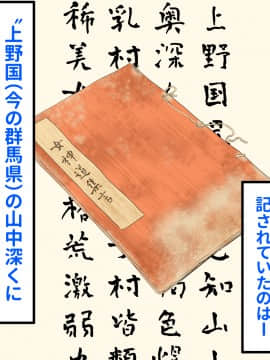 記されていたのはー
上野国
知山
奥深
色爆
乳村
村皆
稀美
格荒激弱
〝上野国(今の群馬県)の山中深くに